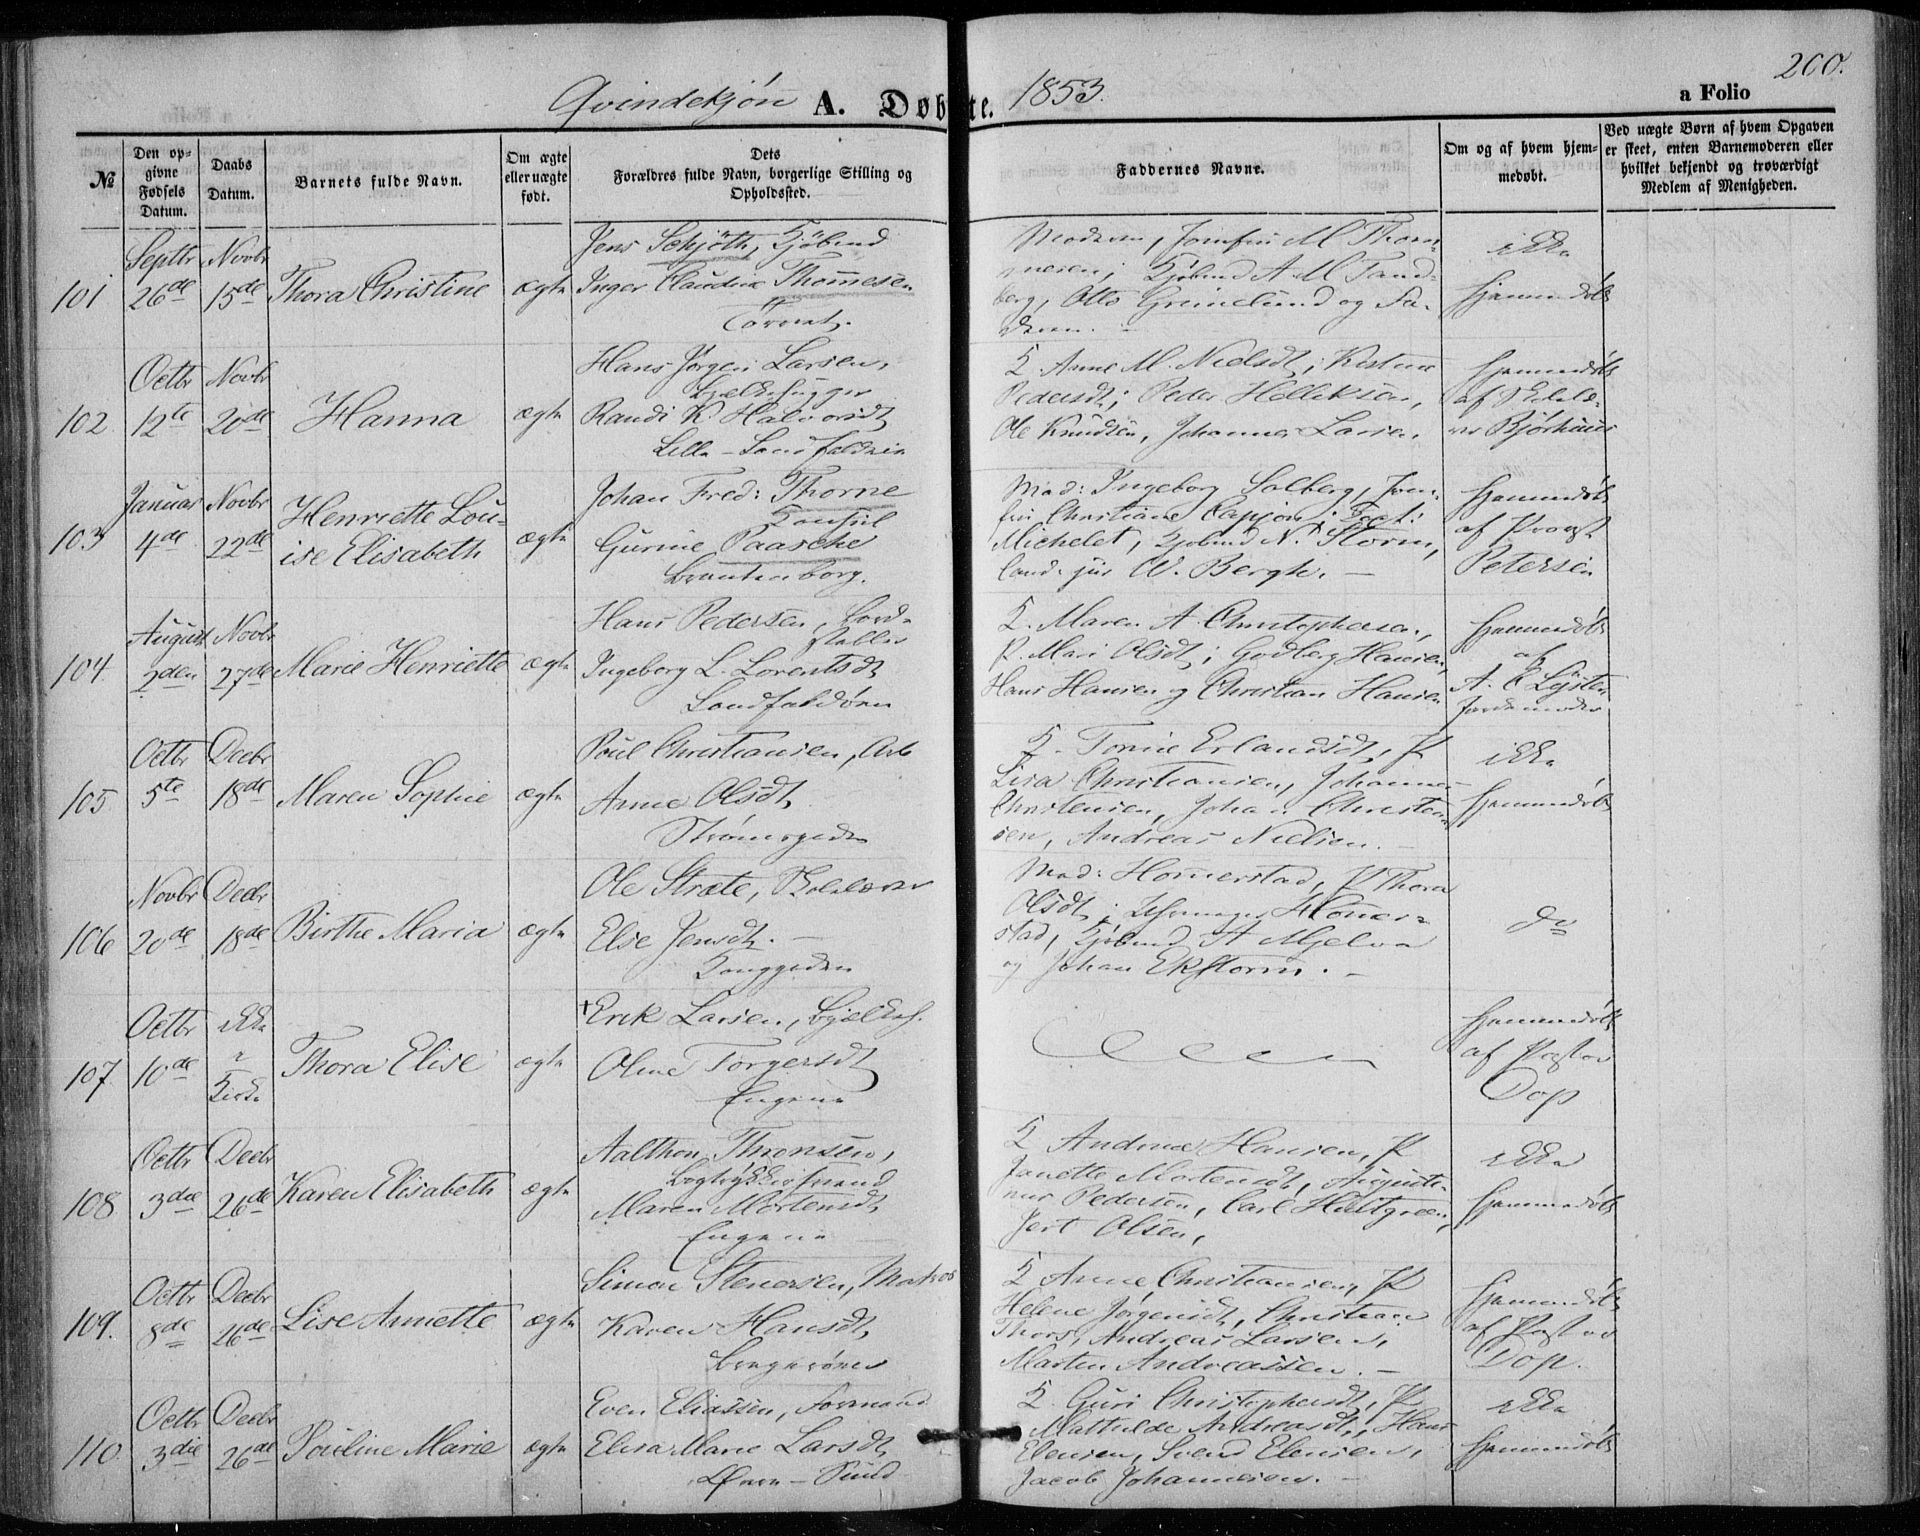 Qvindekjøn A. Døbte. 1853. a Folio 200.
№
Den opgivne Fødsels Datum.
Daabs Datum.
Barnets fulde Navn.
Om ægte eller uægte født.
Dets Forældres fulde Navn, borgerlige Stilling og Opholdssted.
Faddernes Navne.
Om og af hvem hjemmedøbt.
Ved uægte Børn af hvem Opgaven er skeet, enten Barnemoderen eller hvilket bekjendt og troværdigt Medlem af Menigheden.
101
Septbr 26de
Novbr 15de
Thora Christine
ægte
Jens Schjøth, Kjøbmd
Inger Claudine Thomesen
Torvet.
Moderen, Jomfru M Thom-
mesen; Kjøbmd A M Tand-
berg, Otto Grimelund og Fa-
deren.
ikke
hjemmedøbt
102
Octbr 12te
Novbr 20de
Hanna
ægte
Hans Jørgen Larsen,
Bjelkehugger
Randi K. Halvorsdt
Lille-Landfaldøen
K Anne M. Nielsdt; Kistine
Pedersdt; Peder Helliksen,
Ole Knudsen, Johannes Larsen.
hjemmedøbt
af Skolelæ-
rer Bjørhuus
103
Januar 4de
Novbr 22de
Henriette Lou-
ise Elisabeth
ægte
Johan Fred: Thorne
Konsul
Gurine Paasche
Brantenborg.
Mad: Ingeborg Solberg, Jom-
fru Christiane Capjon; Fogt:
Michelet, Kjøbmd N. Storm,
Cand. jur W. Bergh. —
hjemmedøbt
af Provst
Petersen
104
August 2den
Novbr 27de
Marie Henriette
ægte
Hans Pedersen, Bord-
stabler
Ingeborg L. Lorentsdt
Landfaldøen
K. Maren A. Christophersen,
P. Mari Olsdt; Godberg Hansen,
Hans Hansen og Christian Hansen
hjemmedøbt
af
A. E Lysten
Jordemoder
105
Octbr 5te
Decbr 18de
Maren Sophie
ægte
Poul Christiansen, Arb
Anne Olsdt,
Strømsgaden
K. Torine Erlandsdt, P
Lisa Christiansen, Johannes
Christensen, Johan Christian-
sen, Andreas Nielsen.
ikke
hjemmedøbt
106
Novbr 20de
Decbr 18de
Birthe Maria
ægte
Ole Stræte, Skolelærer
Else Jensdt. —
Konggaden
Mad: Homerstad, P Thora
Olsdt; Homer-
stad, Kjøbmd A Mjelva
og Johan Ekstorm. —
do
107
Octbr 10de
ikke
i
Kirke
Thora Elise
ægte
+Erik Larsen, Bjælkeh.
Oline Torgersdt
Engene
hjemmedøbt
af Pastor
Dop
108
Octbr 3die
Decbr 26de
Karen Elisabeth
ægte
Aalthon Thronsen,
Bogtrykkersvend
Maren Mortensdt
Engene
K Andrea Hansen, P
Janette Mortensdt, August-
nus Pedersen, Carl Hultgreen,
Jert Olsen,
ikke
hjemmedøbt
109.
Octbr 8de
Decbr 26de
Lise Annette
ægte
Simon Stenersen, Matros
Karen Hansdt,
Bragerøen
K Anne Christiansen, P
Helene Jørgensdt, Christian
Thors, Andreas Larsen,
Marten Andreassen. —
hjemmedøbt
af Pastor
Dop.
110
Octbr 3die
Decbr 26de
Pauline Marie
ægte
Even Eliassen, Formand
Elisa Marie Larsdt,
Øvre-Sund
K. Guri Christophersdt, P
Mathilde Andreasdt, Hans
Elensen, Svend Elensen,
Jacob Johannesen. —
ikke
hjemmedøbt